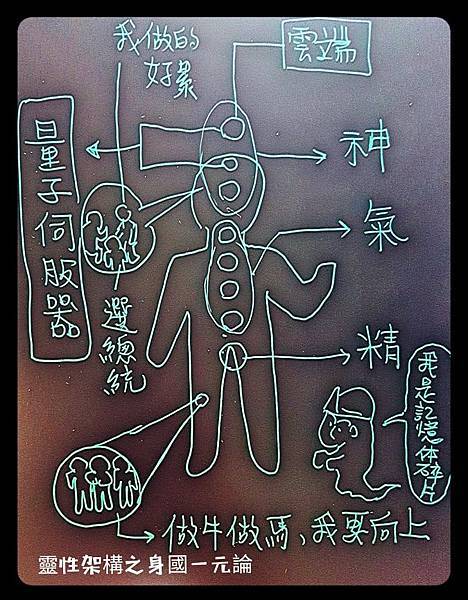 我做的
好累
雲端
量子伺服器
神
氣
選總統
精
我是記憶体碎片
做牛做馬、我要向上
靈性架構之身國一元論